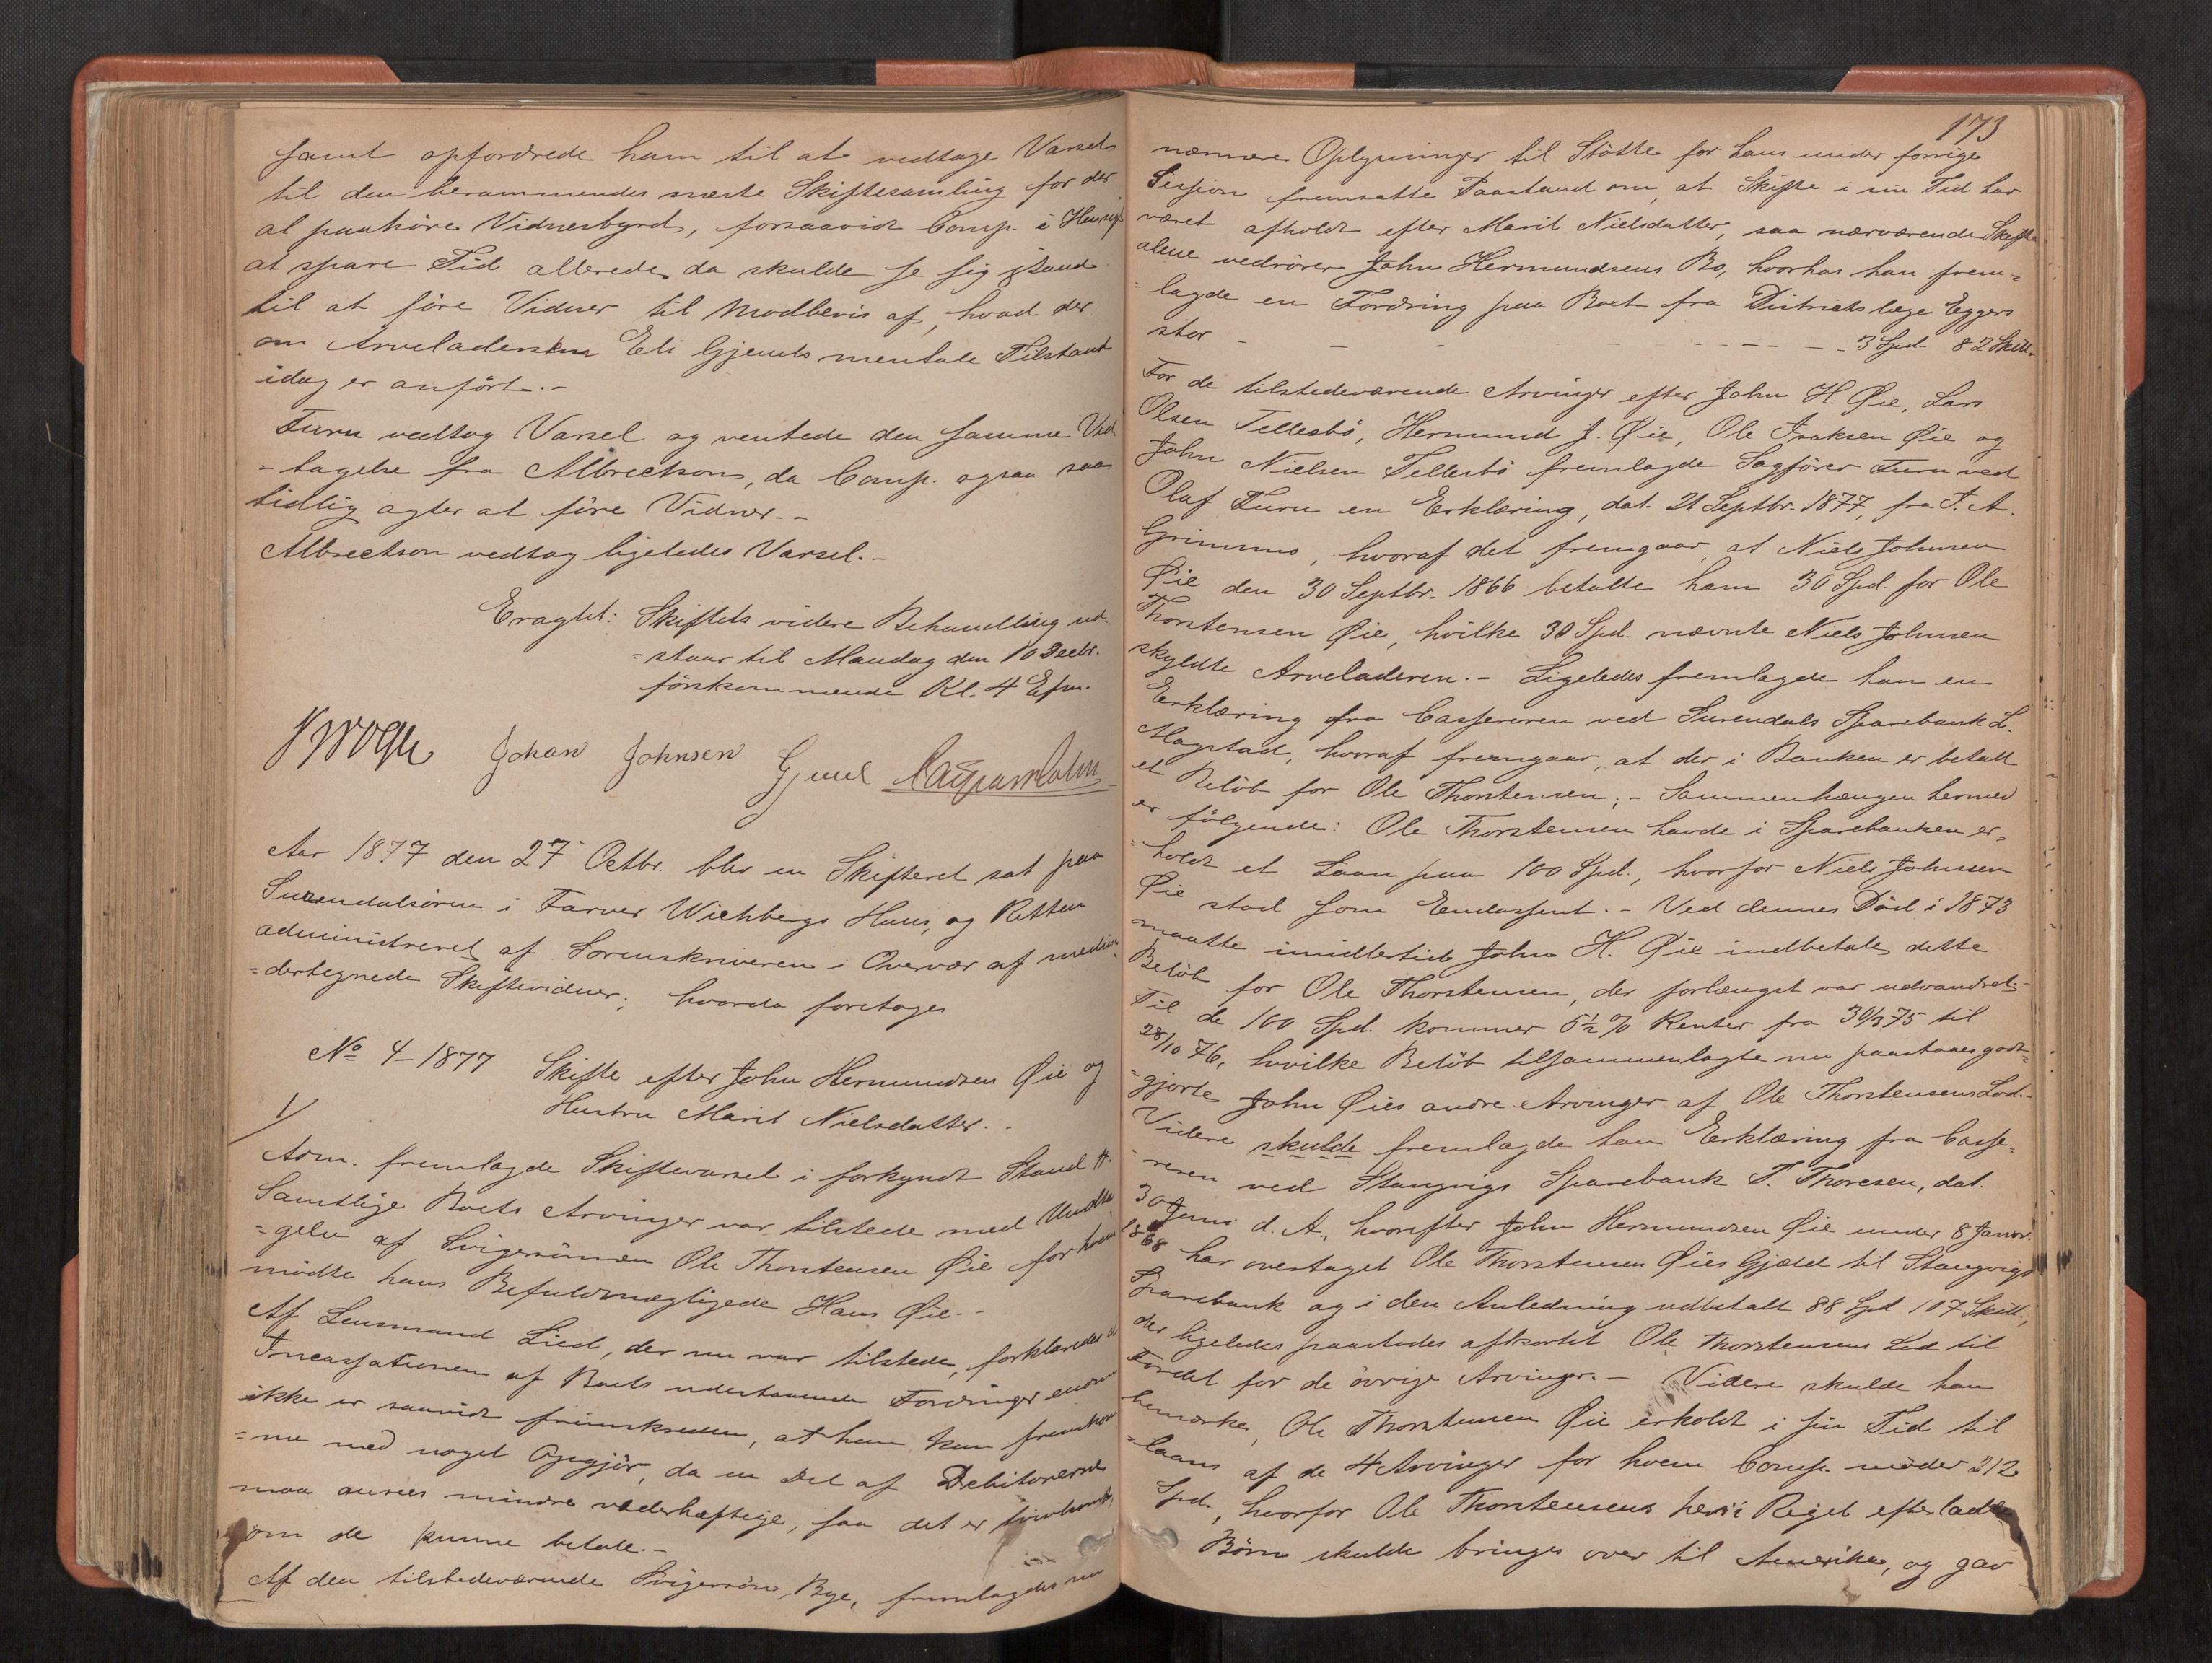 samt opfordrede ham til at vedtage Varsel
til den berammendes næste Skiftesamling for der
at paahöre Vidnesbyrd, forsaavidt Comp. i Hensigt
at spare Tid allerede da skulde se sig istand
til at före Vidner til Modbevis af, hvad der
om Arveladersken Eli Gjeuls mentale Tilstand
idag er anfört.-
Furu vedtog Varsel og ventede den samme Ved
=tagelse fra Albrectson, da Comp. ogsaa saa
tidlig agter at före Vidner.-
Albrectson vedtog ligeledes Varsel.-
Eragtet: Skiftets videre Behandling ud-
=staar til Mandag den 10 Decbr.
förstkommende Kl. 4 Efm.
Johan Johnsen Gjeul
Aar 1877 den 27 Octbr. blev en Skifteret sat paa
Surendalsören i Farver Wichbergs Huus, og Retten
administreret af Sorenskriveren i Overvær af neden-
=dertegnede Skiftevidner; hvorda foretoges
No 4-1877 Skifte efter John Hermundsen Øie og
Hustru Marit Nielsdatter.-
1/
Adm. fremlagde Skiftevarsel i forkyndt Stand #
Samtlige Boets Arvinger var tilstede med Undta
=gelse af Svigersönnen Ole Thorstensen Øie for hvem
mödte hans Befuldmægtigede Hans Øie.-
Af Lensmand Lied, der nu var tilstede, forklaredes at
Incassationen af Boets udestaaende Fordringer endnu
ikke er saavidt fremskreden, at han kan fremkom
=me med noget Opgjör, da en Del af Debitorerne
maa ansees mindre vederhæftige, saa det er tvivlsomt,
om de kunne betale.-
Af den tilstedeværende Svigersön, Bye, fremlagdes nu
173
nærmere Oplysninger til Stötte for hans under forrige
Session fremsatte Paastand om, at Skifte i sin Tid har
været afholdt efter Marit Nielsdatter, saa nærværende Skifte
alene vedrörer John Hermundsens Bo, hvorhos han frem=
=lagde en Fordring paa Boet fra Distriktslæge Eggers
stor - - - - - - - - 3 Spd. 82 Skill.
For de tilstedeværende Arvinger efter John H. Øie, Lars
Olsen Tellesbö, Hermund J. Øie, Ole Isaksen Øie og
John Nielsen Tellesbö fremlagde Sagförer Furu ved
Olaf Furu en Erklæring, dat. 21 Septbr. 1877, fra T. A.
Grimsmo, hvoraf det fremgaar, at Niels Johnsen
Øie den 30 Septbr. 1866 betalte ham 30 Spd. for Ole
Thorstensen Øie, hvilke 30 Spd. nævnte Niels Johnsen
skyldte Arveladeren.- Ligeledes fremlagde han en
Erklæring fra Cassereren ved Surendals Sparebank L.
Mogstad, hvoraf fremgaar, at der i Banken er betalt
et Belöb for Ole Thorstensen;- Sammenhængen hermed
er fölgende: Ole Thorstensen havde i Sparebanken er=
=holdt et Laan paa 100 Spd., hvorfor Niels Johnsen
Øie stod som Endossent.- Ved dennes Död i 1873
maatte imidlertid John H. Øie indbetale dette
Belöb for Ole Thorstensen, der forlængst var udvandret.-
Til de 100 Spd. kommer 5½% Renter fra 30/3 75 til
28/10 76, hvilke Belöb tilsammenlagte nu paastaaes godt=
=gjorte John Øies andre Arvinger af Ole Thorstensens Lod.-
Videre skulde fremlagde han Erklæring fra Casse=
=reren ved Stangvigs Sparebank T. Thoresen, dat.
30 Juni d. A., hvorefter John Hermundsen Øie under 8 Januar
1868 har overtaget Ole Thorstensen Øies Gjæld til Stangvigs
Sparebank og i den Anledning udbetalt 88 Spd 107 Skill.,
der ligeledes paastodes afkortet Ole Thorstensens Lod til
Fordel for de övrige Arvinger.- Videre skulde han
bemærke, Ole Thorstensen Øie erholdt i sin Tid til
=laans af de 4 Arvinger for hvem Comp. möder 212
Spd., hvorfor Ole Thorstensens her i Riget efterladte
Börn skulde bringes over til Amerika, og gav